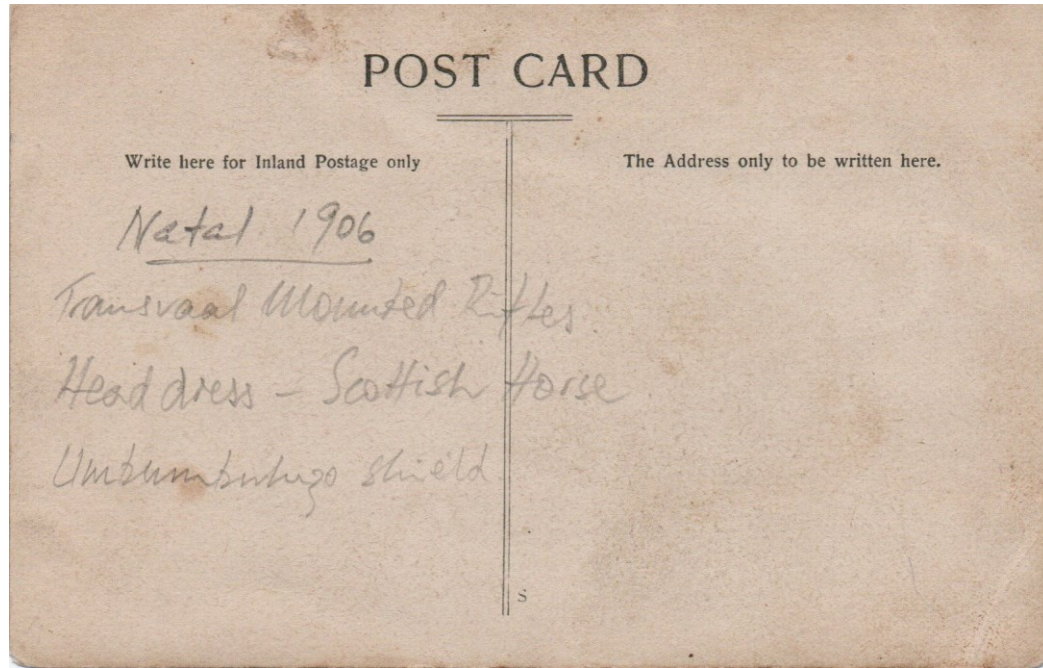 POST CARD
Write here for Inland Postage only
The Address only to be written here.
Natal 1906
Transvaal Mounted Rifles
Head dress – Scottish Horse
shield
S